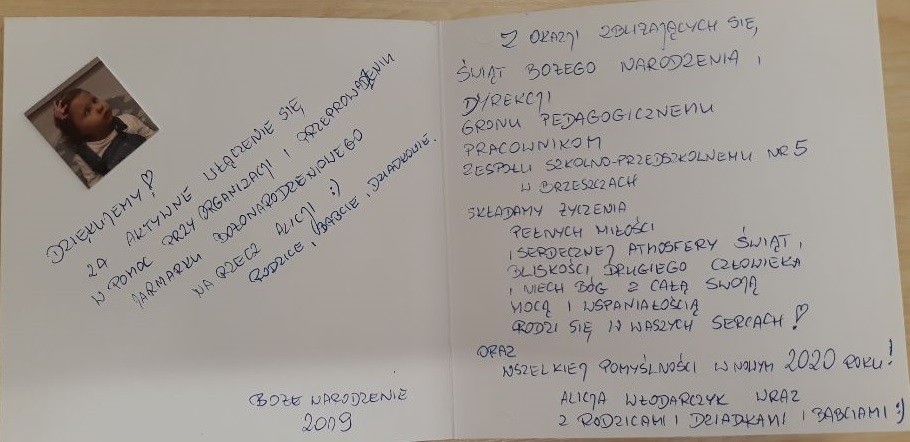 DZIĘKUJEMY!
ZA AKTYWNE WŁĄCZENIE SIĘ
W POMOC PRZY ORGANIZACJI I PRZEPROWADZENIU
JARMARKU BOŻONARODZENIOWEGO
NA RZECZ ALICJI :)
RODZICE, BABCIE, DZIADKOWIE.
BOŻE NARODZENIE
2019
Z OKAZJI ZBLIŻAJĄCYCH SIĘ,
ŚWIĄT BOŻEGO NARODZENIA,
DYREKCJI
GRONU PEDAGOGICZNEMU
PRACOWNIKOM
ZESPOŁU SZKOLNO-PRZEDSZKOLNEMU NR 5
W BRZESZCZACH
SKŁADAMY ŻYCZENIA
PEŁNYCH MIŁOŚCI
I SERDECZNEJ ATMOSFERY ŚWIĄT,
BLISKOŚCI DRUGIEGO CZŁOWIEKA
I NIECH BÓG Z CAŁĄ SWOJĄ
MOCĄ I WSPANIAŁOŚCIĄ
RODZI SIĘ W WASZYCH SERCACH!
ORAZ
WSZELKIEJ POMYŚLNOŚCI W NOWYM 2020 ROKU!
ALICJA WŁODARCZYK WRAZ
Z RODZICAMI I DZIADKAMI I BABCIAMI :)